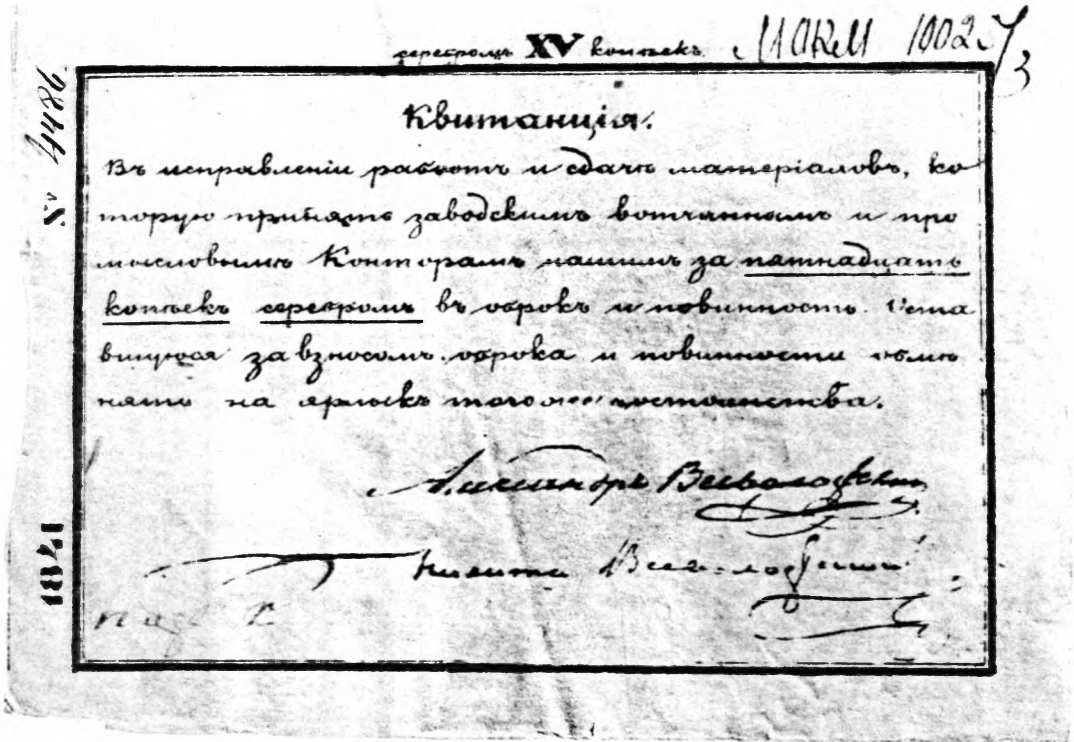 серебромъ XV копѣекъ МОКМ 10027/3
№ 4486
Квитанція.
Въ исправленіи работъ и сдачѣ матеріаловъ, ко
торую принять заводскимъ вотчиннымъ и про
мысловымъ Конторамъ нашимъ за пятнадцать
копѣекъ серебромъ въ оброкъ и повинность. Оста
вшуюся за взносомъ оброка и повинности обмѣ
нять на ярлыкъ того же достоинства.
Александръ Всеволожскій
Никита Всеволожскій